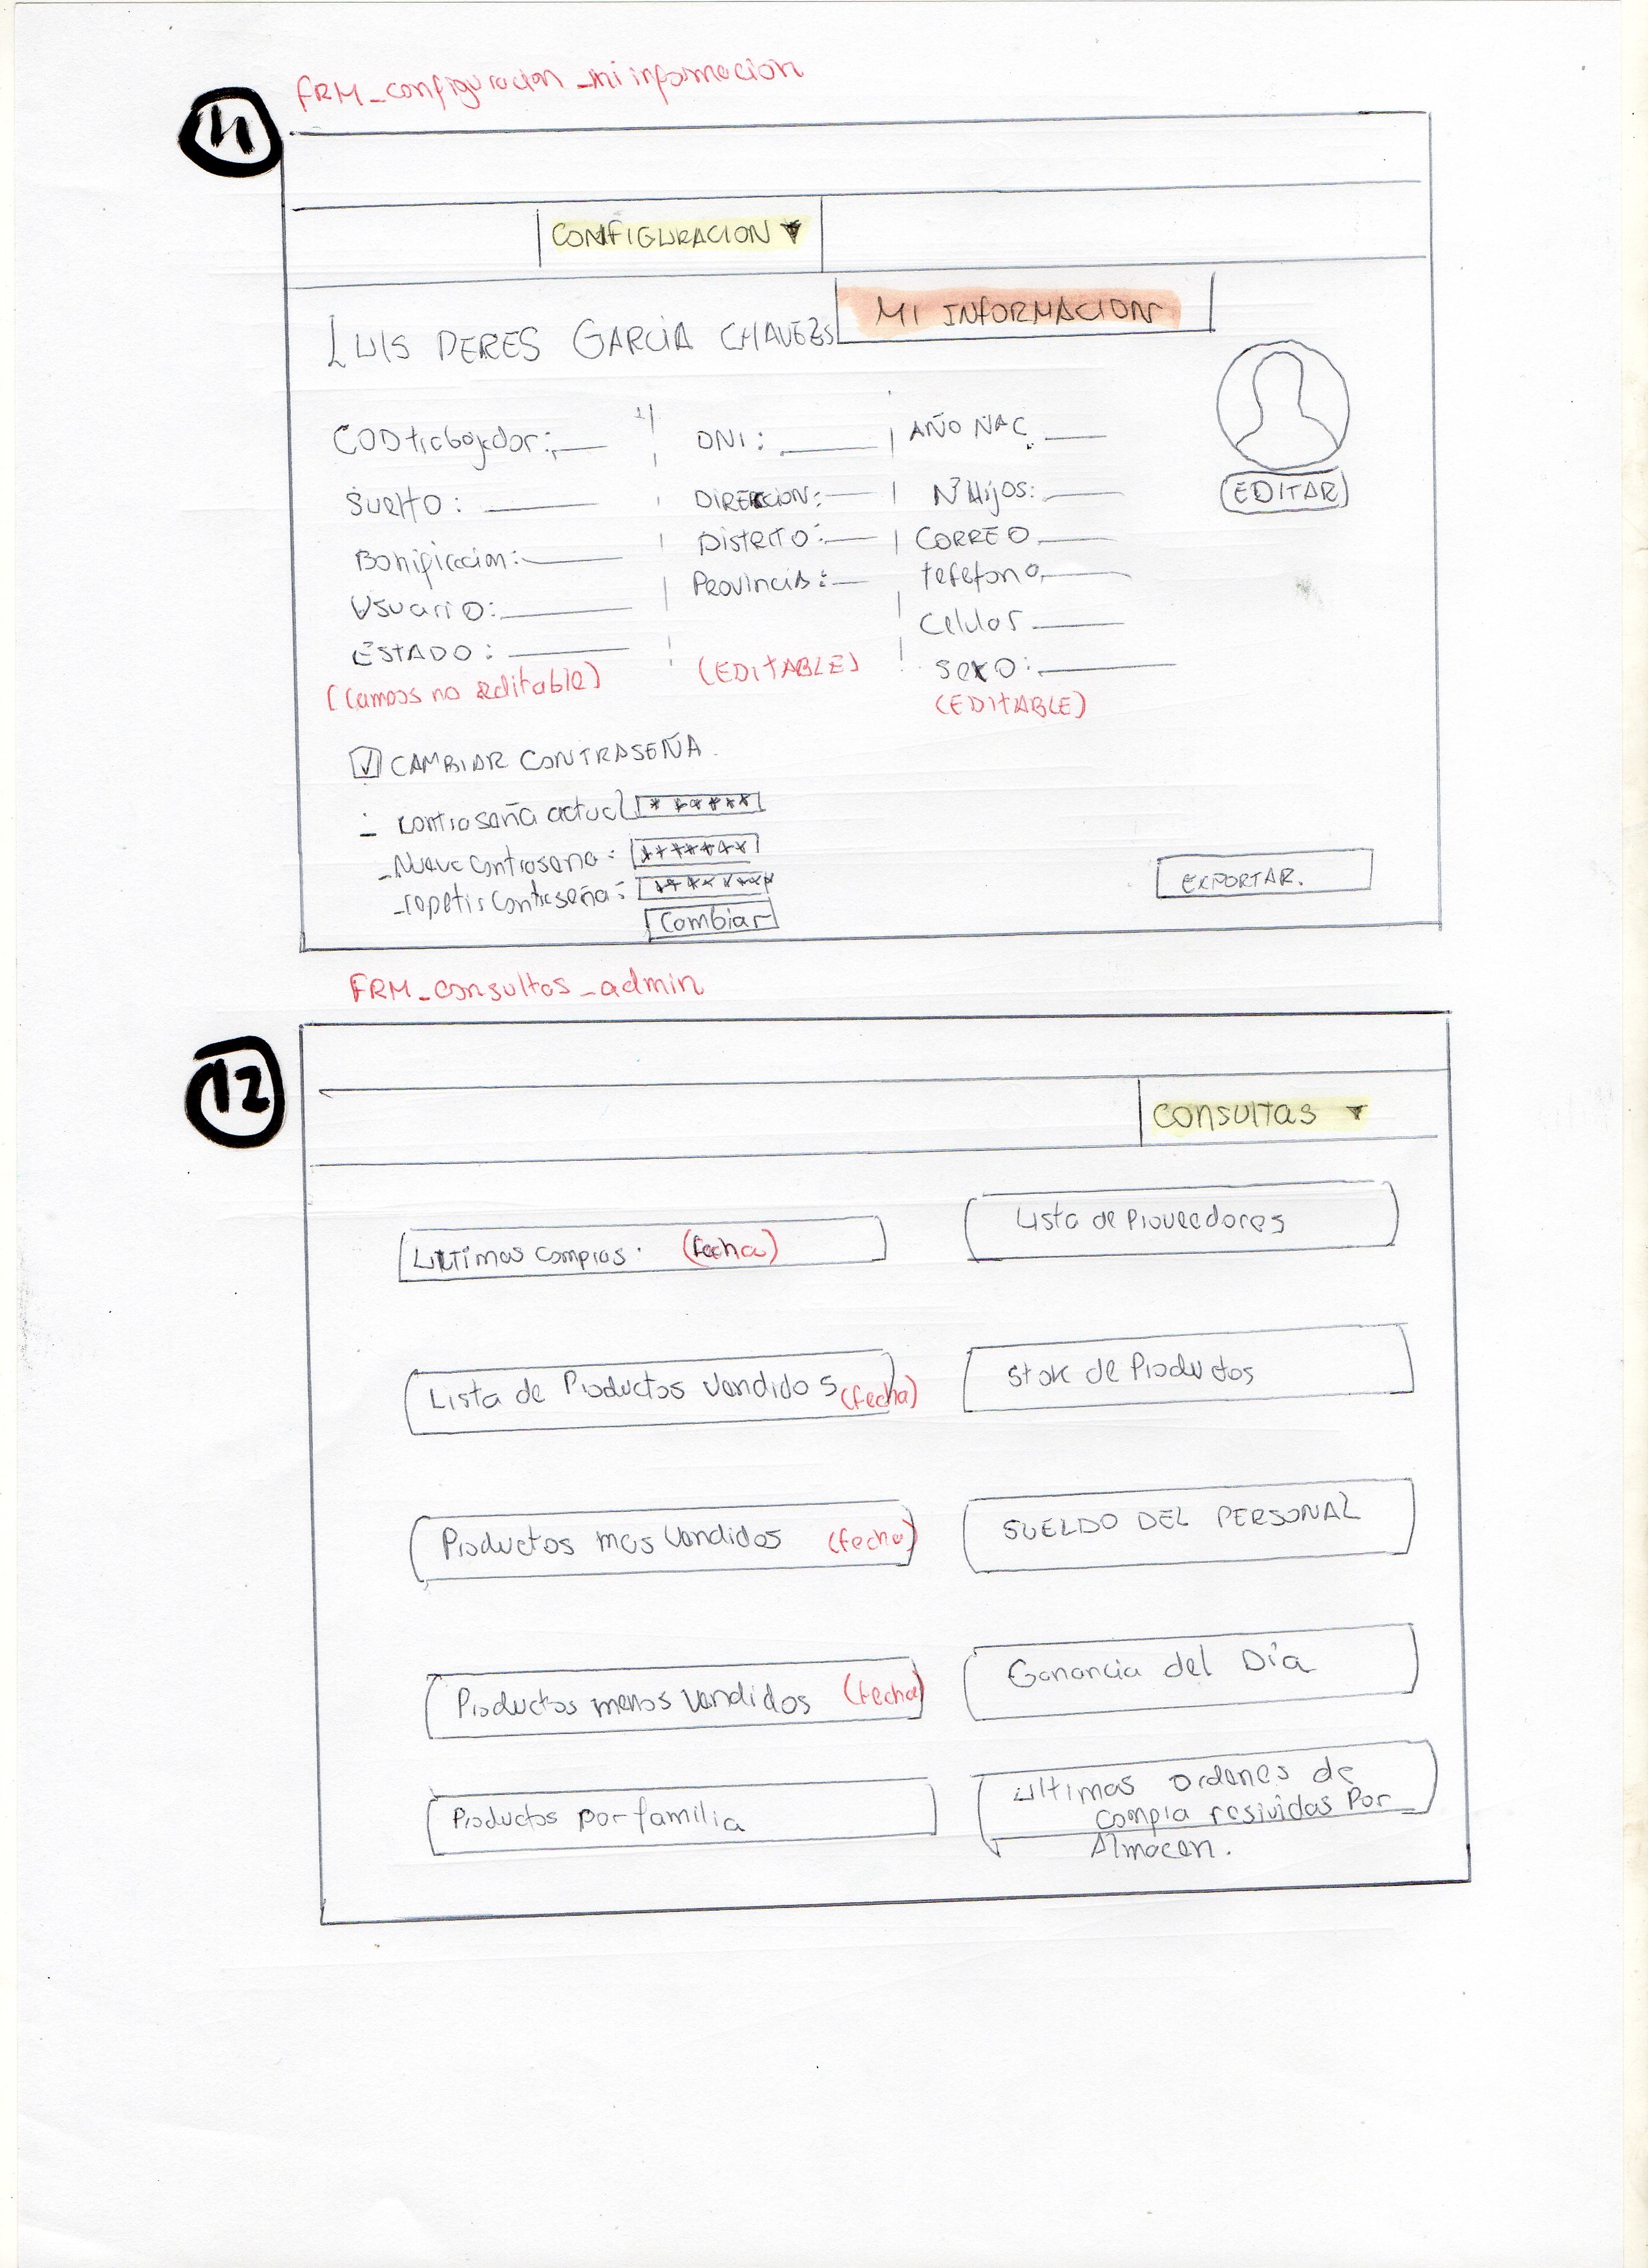 FRM_configuracion_mi informacion
11
CONFIGURACION ▼
MI INFORMACION
LUIS PERES GARCIA CHAVEZS
CODtrabajador: DNI: AÑO NAC.
Suelto: DIRECCION: N° Hijos:
Bonificacion: Distrito: CORREO
Usuario: Provincia: telefono
ESTADO: Celular
sexo:
(Campos no editable) (EDITABLE) (EDITABLE)
(EDITAR)
CAMBIAR CONTRASEÑA.
- contraseña actual *******
- Nueva contraseña: *******
- repetir contraseña: *******
Cambiar
EXPORTAR.
FRM_consultas_admin
12
Consultas ▼
Ultimas compras. (fecha)
Lista de Proveedores
Lista de Productos Vendidos (fecha)
Stok de Productos
Productos mas Vendidos (fecha)
SUELDO DEL PERSONAL
Productos menos Vendidos (fecha)
Ganancia del Día
Productos por familia
ultimas ordenes de
compra resividas Por
Almacen.